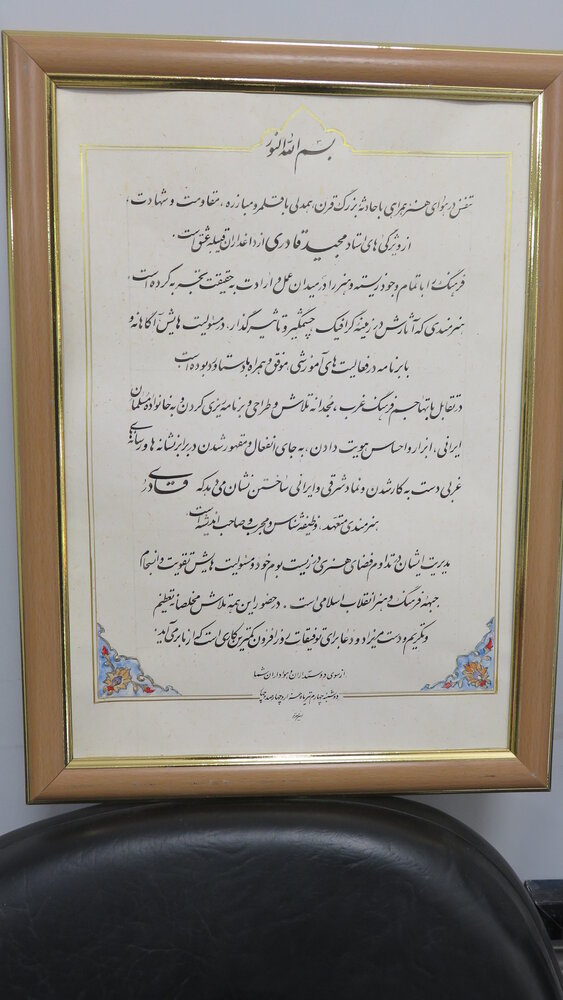 بسم الله النور
تنفس در هوای هنر همرای با حادثهٔ بزرگ قرن، همدلی با قلم و مبارزه، مقاومت و شهادت،
از ویژگی های استاد مجید قادری از داغداران قبیلهٔ عشق است.
فرهنگ را با تمام وجود زیسته و هنر را در میدان عمل و ارادت به حقیقت تجربه کرده است.
هنرمندی که آثارش در زمینهٔ گرافیک، چشمگیر و تاثیرگذار، در مسئولیت هایش آگاهانه و
با برنامه در فعالیت های آموزشی، موفق و همراه با دستاورد بوده است
در تقابل با تهاجم فرهنگ غرب، مجدانه تلاش و طراحی و برنامه ریزی کردن و به خانوادهٔ مسلمان
ایرانی، ابزار و احساس هویت دادن، به جای انفعال و مقهور شدن در برابر نشانه ها و رسانه های
غربی دست به کار شدن و نماد شرقی و ایرانی ساختن نشان می دهد که قادری
هنرمندی متعهد، وظیفه شناس و مجرب و صاحب اندیشه است.
مدیریت ایشان در تداوم فضای هنری در زیست بوم خود و مسئولیت هایش تقویت و انسجام
جبههٔ فرهنگ و هنر انقلاب اسلامی است. در حضور این همه تلاش مخلصانه تعظیم
و تکریم و دست مریزاد و دعا برای توفیقات روزافزون کمترین کاری است که از ما برمی آید.
از سوی دوستداران و هواداران شما
دوشنبه چهارم تیر ماه هزار و چهارصد و